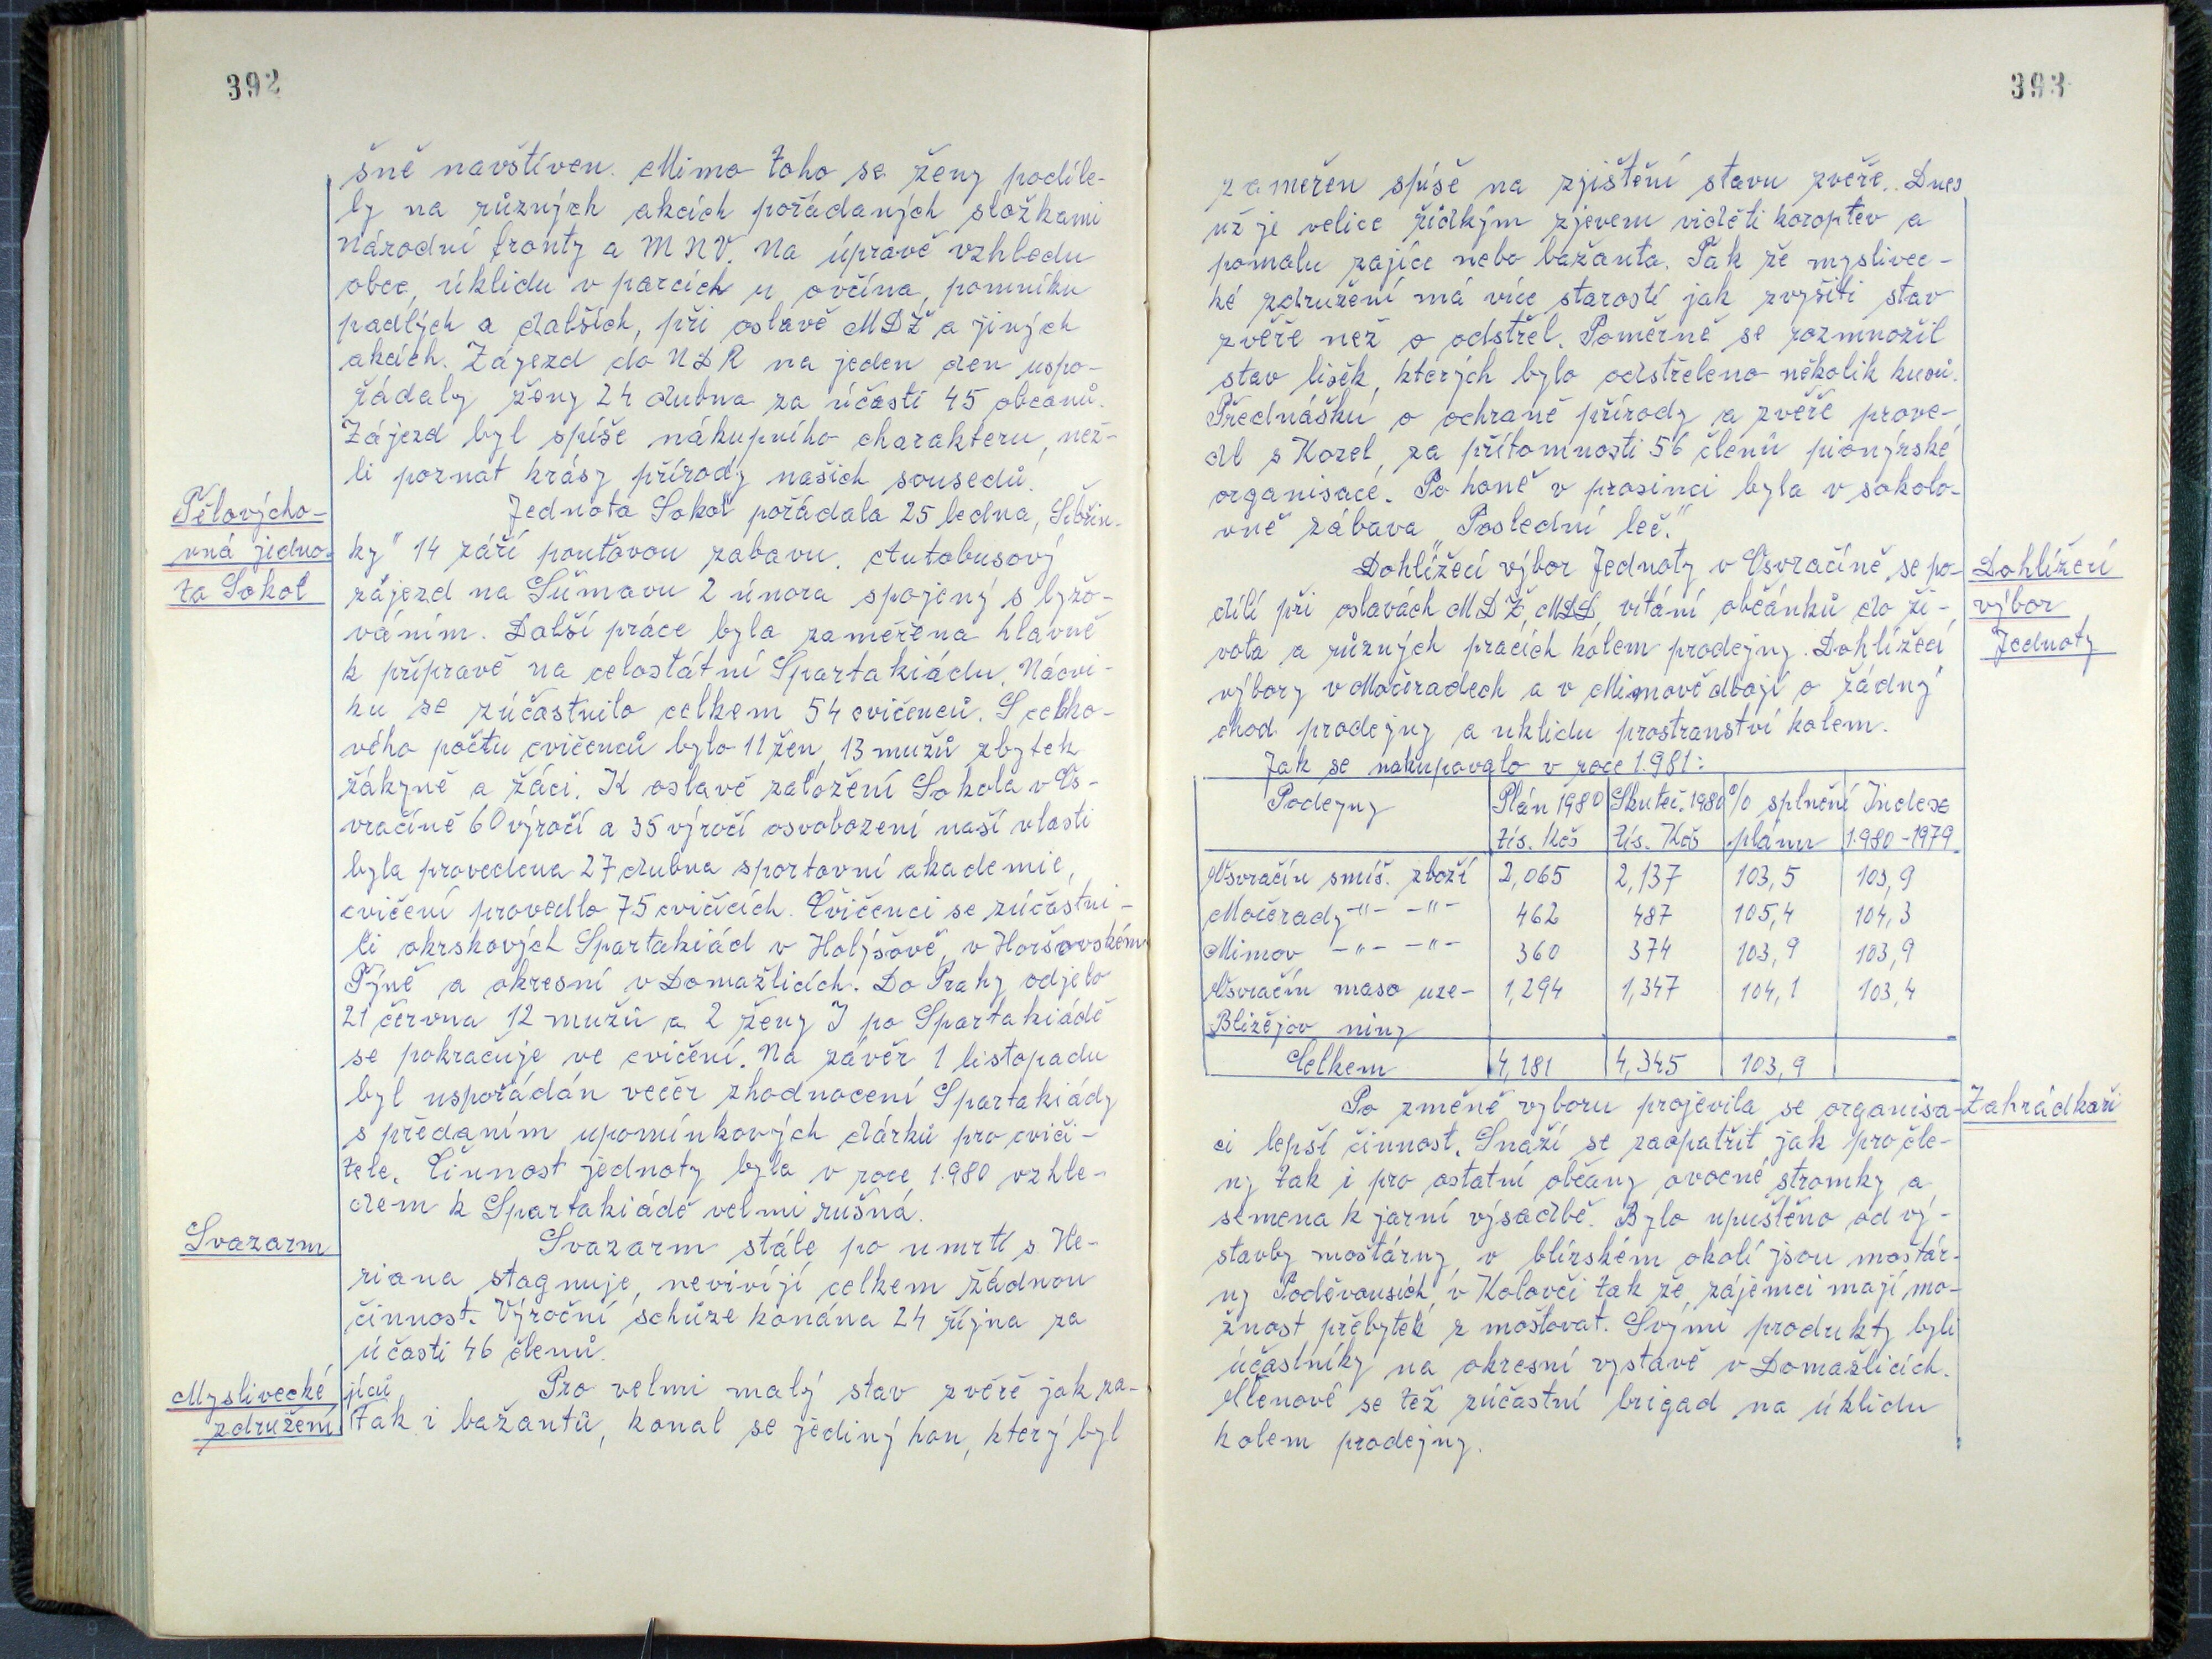 392
šně navštíven. Mimo toho se ženy podíle-
ly na různých akcích pořádaných složkami
národní fronty a MNV. Na úpravě vzhledu
obce, úklidu v parcích u ovčína, pomníku
padlých a dalších, při oslavě MDŽ a jiných
akcích. Zájezd do NDR na jeden den uspo-
řádaly ženy 24 dubna za účasti 45 občanů.
Zájezd byl spíše nákupního charakteru, než-
li poznat krásy přírody našich sousedů.
Tělovýcho-
vná jedno-
ta Sokol
Jednota Sokol pořádala 25 ledna, Šibřin-
ky" 14 září pouťovou zabavu. Autobusový
zájezd na Šumavu 2 února spojený s lyžo-
váním. Další práce byla zaměřena hlavně
k přípravě na celostátní Spartakiádu. Nácvi-
ku se zúčastnilo celkem 54 cvičenců. S celko-
vého počtu cvičenců bylo 11 žen, 13 mužů zbytek
žákyně a žáci. K oslavě založení Sokola v Os-
vračíně 60 výročí a 35 výročí osvobození naší vlasti
byla provedena 27 dubna sportovní akademie,
cvičení provedlo 75 cvičících. Cvičenci se zúčastni-
li okrskových Spartakiád v Holýšově, v Horšovském
Týně a okresní v Domažlicích. Do Prahy odjelo
21 června 12 mužů a 2 ženy I po Spartakiádě
se pokračuje ve cvičení. Na závěr 1 listopadu
byl uspořádán večer zhodnocení Spartakiády
s předaním upomínkových dárků pro cviči-
tele. Činnost jednoty byla v roce 1.980 vzhle-
dem k Spartakiádě velmi rušná.
Svazarm
Svazarm stále po umrtí s. He-
riana stagnuje, nevivíjí celkem žádnou
činnost. Výroční schůze konána 24 října za
účasti 46 členů.
Myslivecké
združení
Pro velmi malý stav zvěře jak za-
jíců
tak i bažantů, konal se jediný hon, který byl
393
zaměřen spíše na zjištění stavu zvěře. Dnes
už je velice řídkým zjevem viděti koroptev a
pomalu zajíce nebo bažanta. Tak že myslivec-
ké združení má více starostí jak zvýšiti stav
zvěře než o odstřel. Poměrně se rozmnožil
stav lišek, kterých bylo odstřeleno několik kusů.
Přednášku o ochraně přírody a zvěře prove-
dl s Kozel, za přítomnosti 56 členů pionýrské
organisace. Po honě v prosinci byla v sokolo-
vně zábava „Poslední leč."
Dohlížecí
výbor
Jednoty
Dohlížecí výbor Jednoty v Osvračíně se po-
dílí při oslavách MDŽ, MDD, vítání občánků do ži-
vota a různých pracích kolem prodejny. Dohlížecí
výbory v Močeradech a v Mimově dbají o řádný
chod prodejny a uklidu prostranství kolem.
Jak se nakupovalo v roce 1.981:
Podejny Plán 1980 Skuteč. 1980 % splnění Index
tis. Kčs tis. Kčs plánu 1.980-1979
Osvračín smíš. zboží 2,065 2,137 103,5 103,9
Močerady -"- -"- 462 487 105,4 104,3
Mimov -"- -"- 360 374 103,9 103,9
Osvračín maso uze- 1,294 1,347 104,1 103,4
Blížějov niny
Celkem 4,181 4,345 103,9
Zahrádkaři
Po změně vyboru projevila se organisa-
ci lepší činnost. Snaží se zaopatřit jak pro čle-
ny tak i pro ostatní občany ovocné stromky a
semena k jarní výsadbě. Bylo upuštěno od vý-
stavby moštárny, v blízském okolí jsou moštár-
ny Poděvousích, v Kolovči tak že zájemci mají mo-
žnost přebytek z moštovat. Svými produkty byli
účastníky na okresní vystavě v Domažlicích.
Členové se též zúčastní brigad na úklidu
kolem prodejny.